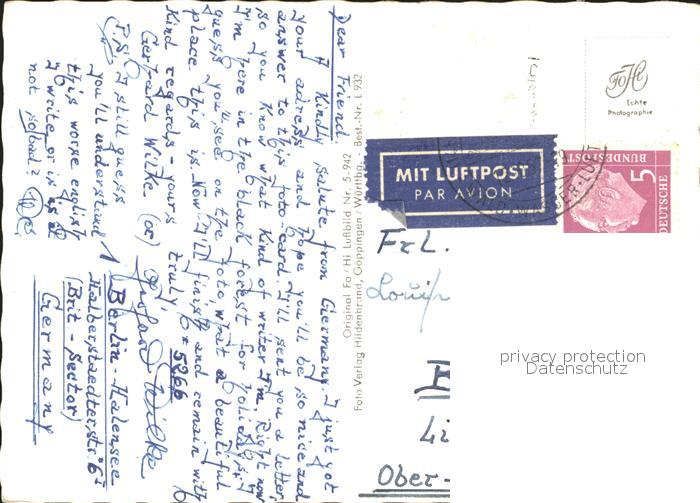 Dear Friend
A Kindly salute from Germany. I just got
your adress and hope you'll be so nice and
answer to this fotocard. I'll sent you a letter,
so you know what kind of writer I'm. Right now
I'm here in the black forest for holidays. I
guess you see on the foto, what a beautiful
place this is. Now I'll finish and remain with
Kind regards - yours truly,
Gerhard Wilke (or)
Gerhard Wilke
P.S. I still guess
you'll understand
this worse english
I write, or is it
not so bad?
Berlin-Halensee
Halberstaedterstr. 6
(Brit-Sector)
Germany
Original Fo/Hi Luftbild Nr. S-942
Foto Verlag Hildenbrand, Göppingen/Württbg. - Best.-Nr. L 932
MIT LUFTPOST
PAR AVION
FoHi
Echte
Photographie
5
DEUTSCHE
BUNDESPOST
Frl.
Ober-
privacy protection
Datenschutz